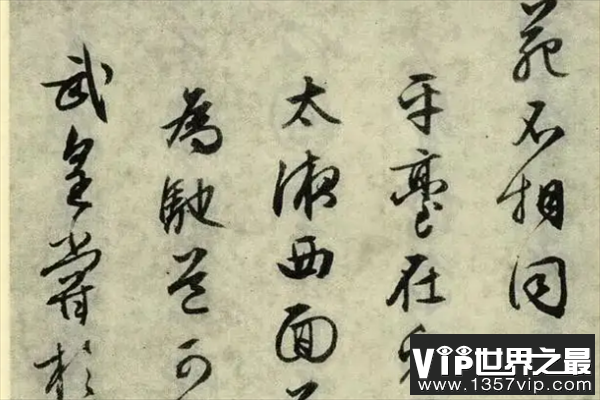 苑不相同
平臺在
太液西面
為馳道可
武皇嘗於
VIP世界之最
www.1357vip.com